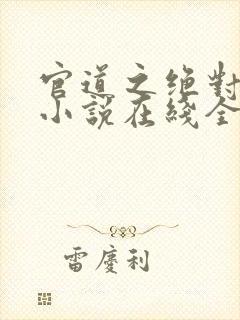 官道之绝對
小說在綫全
雷慶利